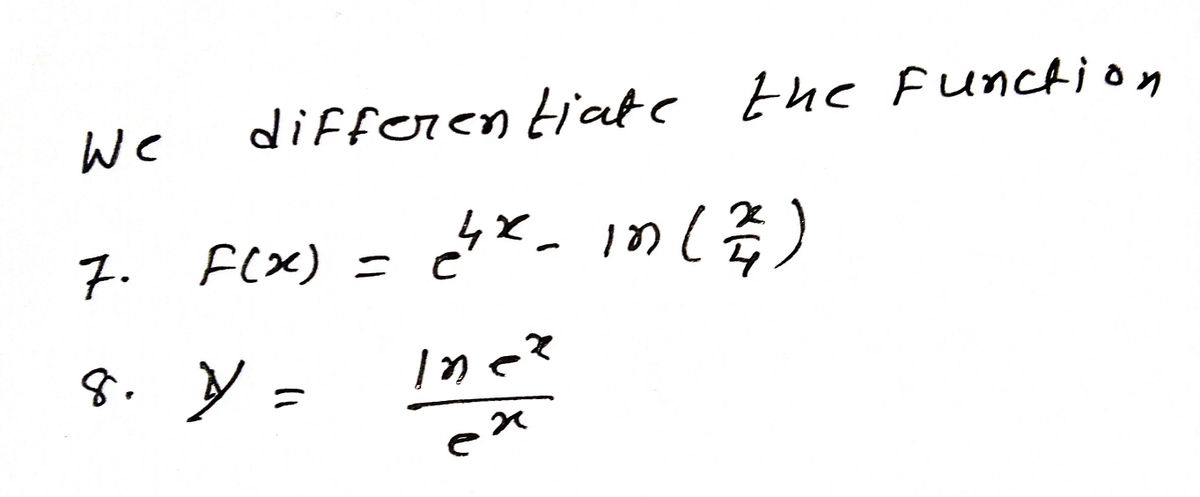 We differentiate the Function
7. F(x) = e^{4x} - ln(x/4)
8. y = \frac{ln e^x}{e^x}